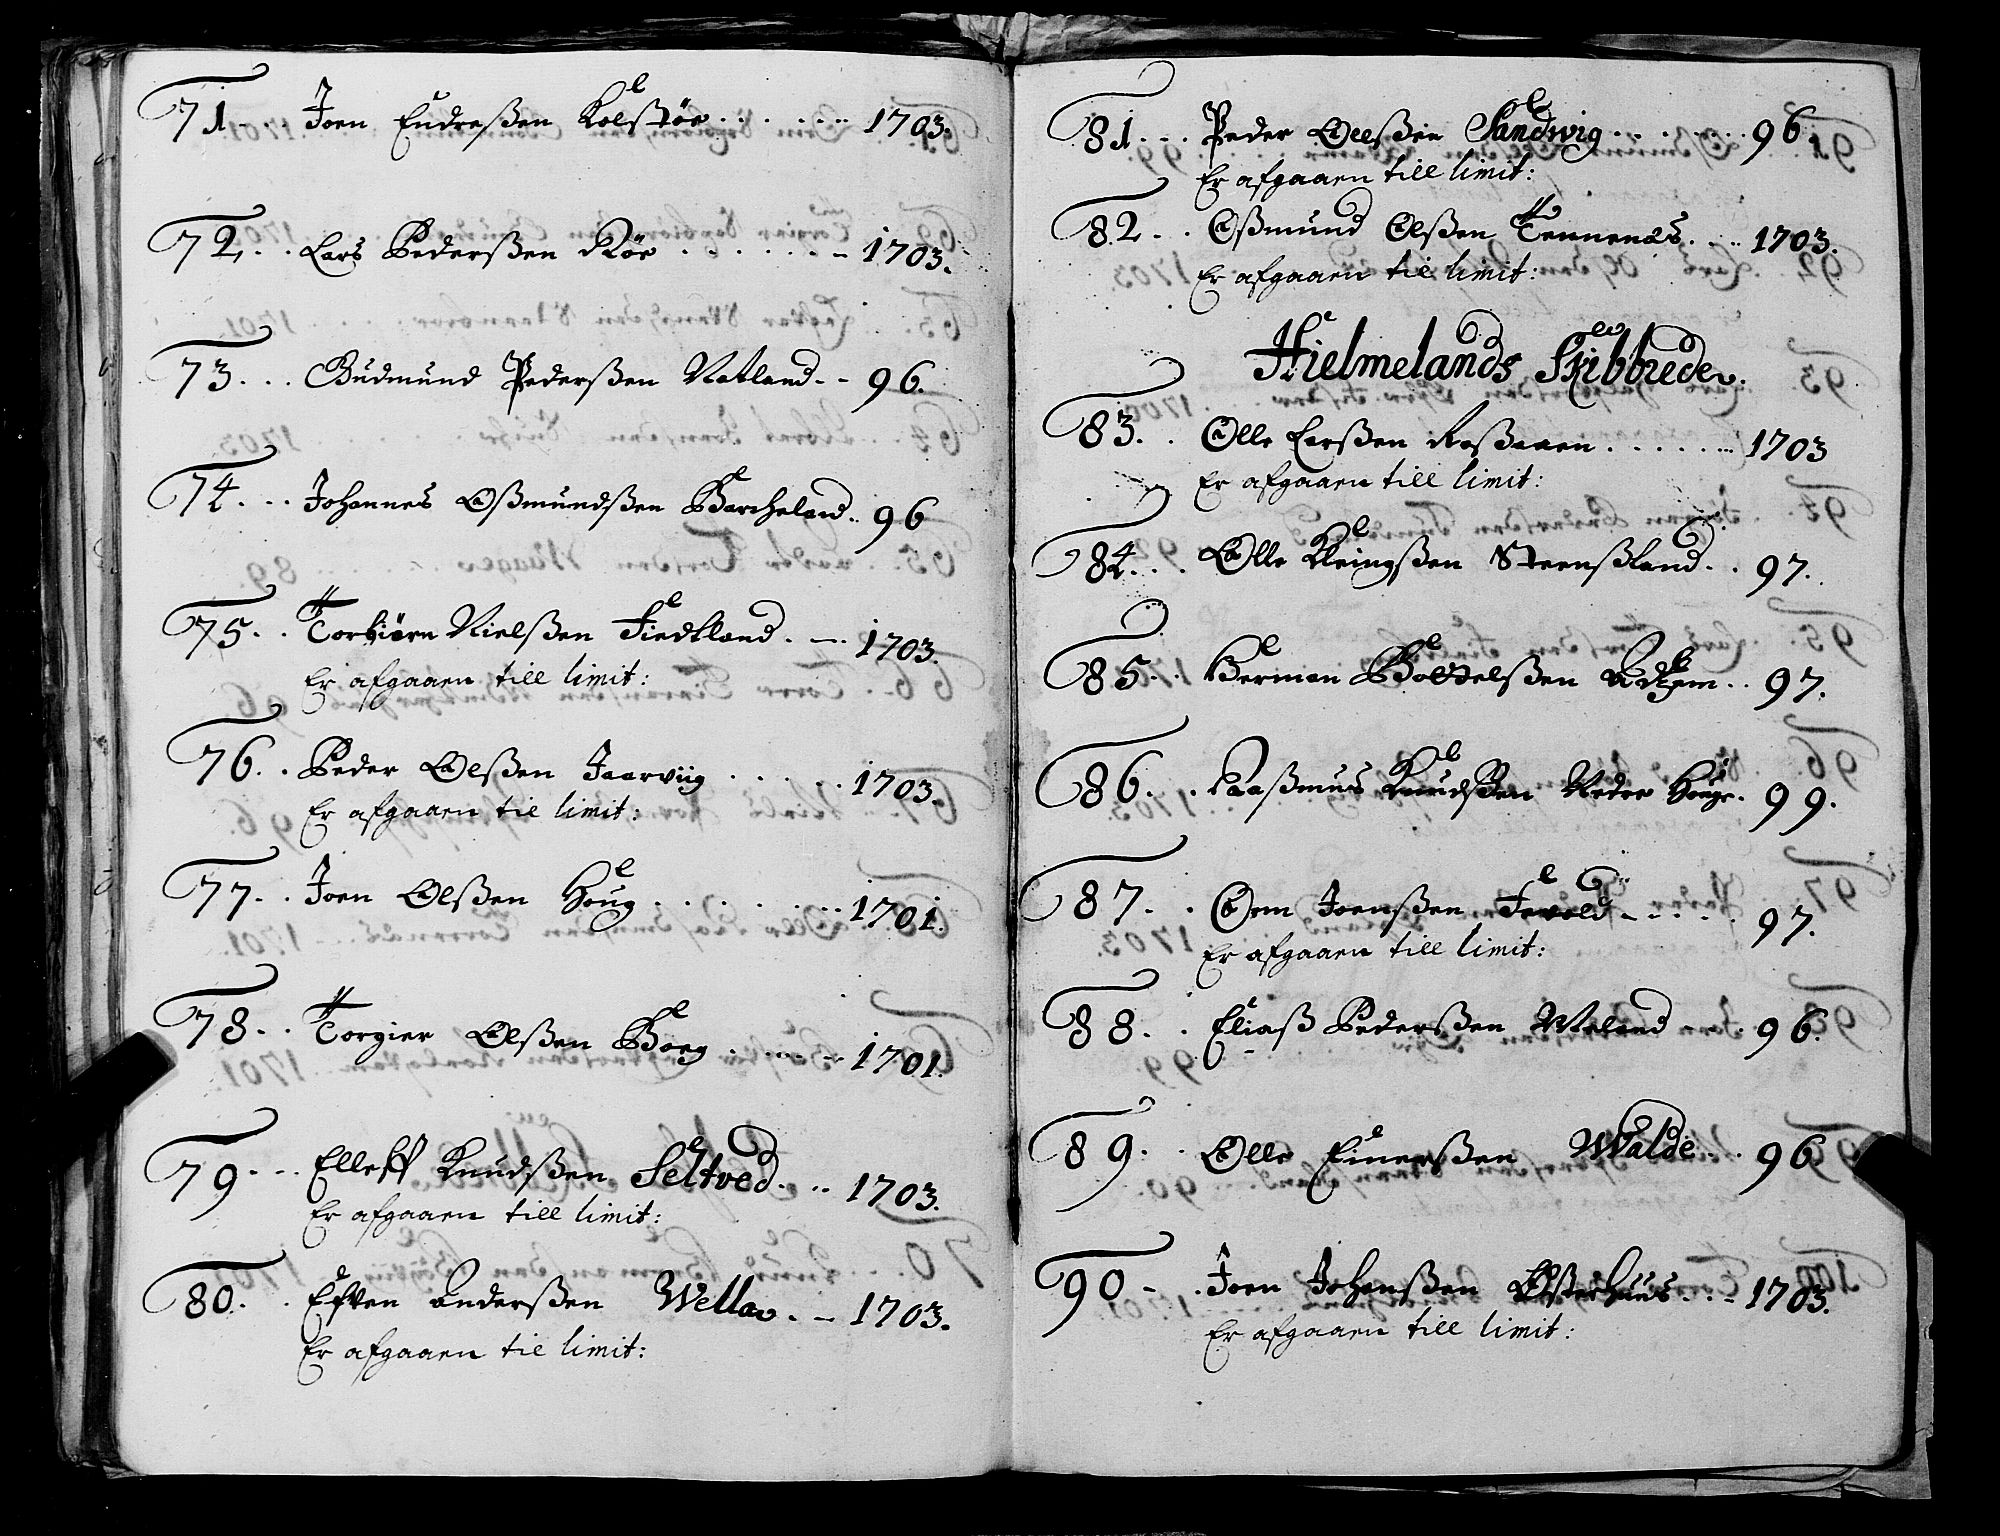 71 - . . Joen Endreßen Kolstöe . . . . . . . 1703.
72, . . Lars Pederßen Röe . . . . . . - 1703.
73 . . . Gudmund Pederßen Natland . - 96.
74 . . . Johannes Oßmundßen Barcheland . . 96
75 . . Torbiörn Nielßen Fiedtland . - . 1703.
Er afgaaen till limit:
76 . . Peder Olßen Jaarviig . . . . . . 1703.
Er afgaaen til limit:
77 - . . Joen Olßen Houg . . . . . . . . 1701.
78 - . . Torgier Olßen Borg . . . . . - 1701.
79 . - - Elleff Knudßen Seltved . . . 1703.
Er afgaaen till limit:
80 . . . Efven Anderßen Wella . - 1703.
Er afgaaen til limit:
81 . - . Peder Olßen Sandwig . . . . . . 96.
Er afgaaen till limit:
82 - . . Oßmund Olßen Tennenæs . . . 1703.
Er afgaaen til limit:
Hielmelands Skibbrede.
83 . . Olle Larßen Roßaaen . . . . . . . 1703
Er afgaaen till limit:
84 . . . Olle Elingßen Steenßland . . 97.
85 . . . Herman Bottelßen . . 97.
86 . . . Raßmus Knudßen Nedre Houge . 99.
87 - . . Orm Joenßen Tevold - - . . . 97.
Er afgaaen till limit:
88 - . . Eliaß Pederßen Meland - - . 96.
89 . . . Olle Einerßen Walde . . 96.
90 - . Joen Johanßen Østerhuus . . - 1703.
Er afgaaen till limit: